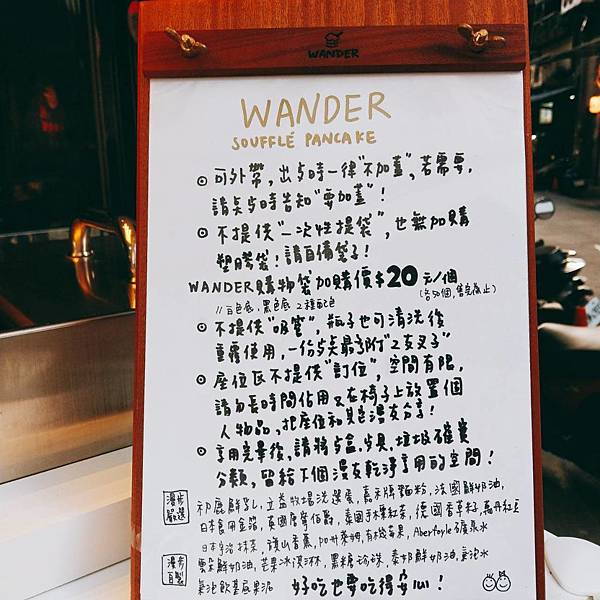 WANDER
WANDER
SOUFFLÉ PANCAKE
可外帶，出餐時一律"不加蓋"，若需要，
請點餐時告知"要加蓋"！
不提供"一次性提袋"，也無加購
塑膠袋！請自備袋子！
WANDER購物袋加購價$20元/個
(各50個,售完為止)
// 白色底，黑色底 2種配色
不提供"吸管"，瓶子也可清洗後
重複使用，一份餐最多附"2支叉子"
座位區不提供"訂位"，空間有限，
請勿長時間佔用又在椅子上放置個
人物品，把座位和其它漫友分享！
享用完畢後，請將餐盒.餐具.垃圾確實
分類，留給下個漫友乾淨享用的空間！
漫步
嚴選
初鹿鮮乳，立益牧場洗選蛋，嘉禾牌麵粉，法國鮮奶油，
日本食用金箔，英國唐寧伯爵，泰國手標紅茶，德國香草籽，萬丹紅豆
日本宇治抹茶，旗山香蕉，加州桑姆，有機莓果，Aberfoyle礦泉水
漫步
自製
雲朵鮮奶油，芒果冰淇淋，黑糖珍珠，泰奶鮮奶油，氣泡水
氣泡飲基底果泥
好吃也要吃得安心！